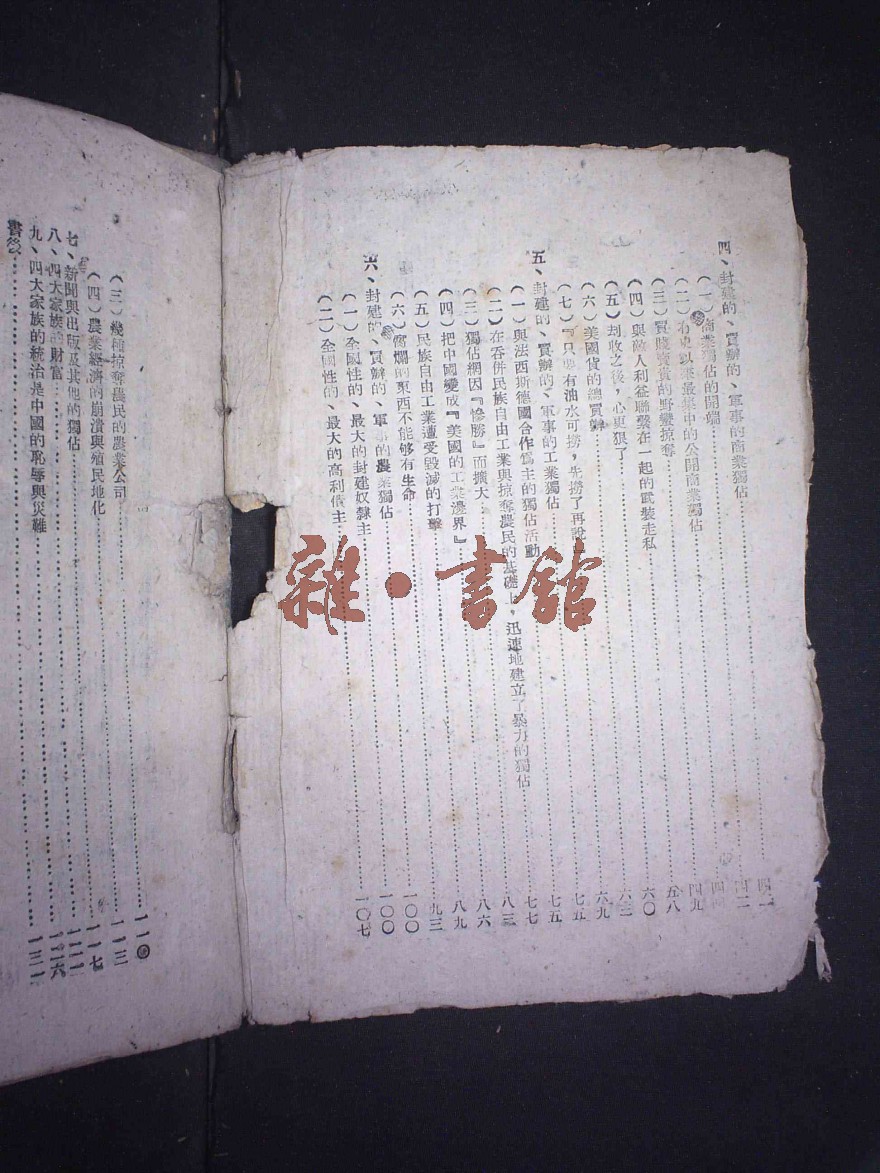 四、封建的、買辦的、軍事的商業獨佔……四一
(一)商業獨佔的開端……四二
(二)有史以來最集中的公開商業獨佔……四四
(三)買賤賣貴的野蠻掠奪……四九
(四)與敵人利益聯繫在一起的武裝走私……五八
(五)刦收之後,心更狠了……六〇
(六)美國貨的總買辦……六二
(七)『只要有油水可撈,先撈了再說』……六九
五、封建的、買辦的、軍事的工業獨佔……七五
(一)與法西斯德國合作為主的獨佔活動……七五
(二)在吞併民族自由工業與掠奪農民的基礎上,迅速地建立了暴力的獨佔……七七
(三)獨佔網因『慘勝』而擴大……八三
(四)把中國變成『美國的工業邊界』……八六
(五)民族自由工業遭受毀滅的打擊……八九
(六)腐爛的東西不能够有生命……九三
六、封建的、買辦的、軍事的農業獨佔……一〇〇
(一)全國性的、最大的封建奴隸主……一〇〇
(二)全國性的、最大的高利債主……一〇七
(三)幾種掠奪農民的農業公司……一一〇
(四)農業經濟的崩潰與殖民地化……一一三
七、新聞與出版及其他的獨佔……一一七
八、四大家族的財富……一二一
九、四大家族的統治是中國的恥辱與災難……一二六
書後……一三一
雜·書館